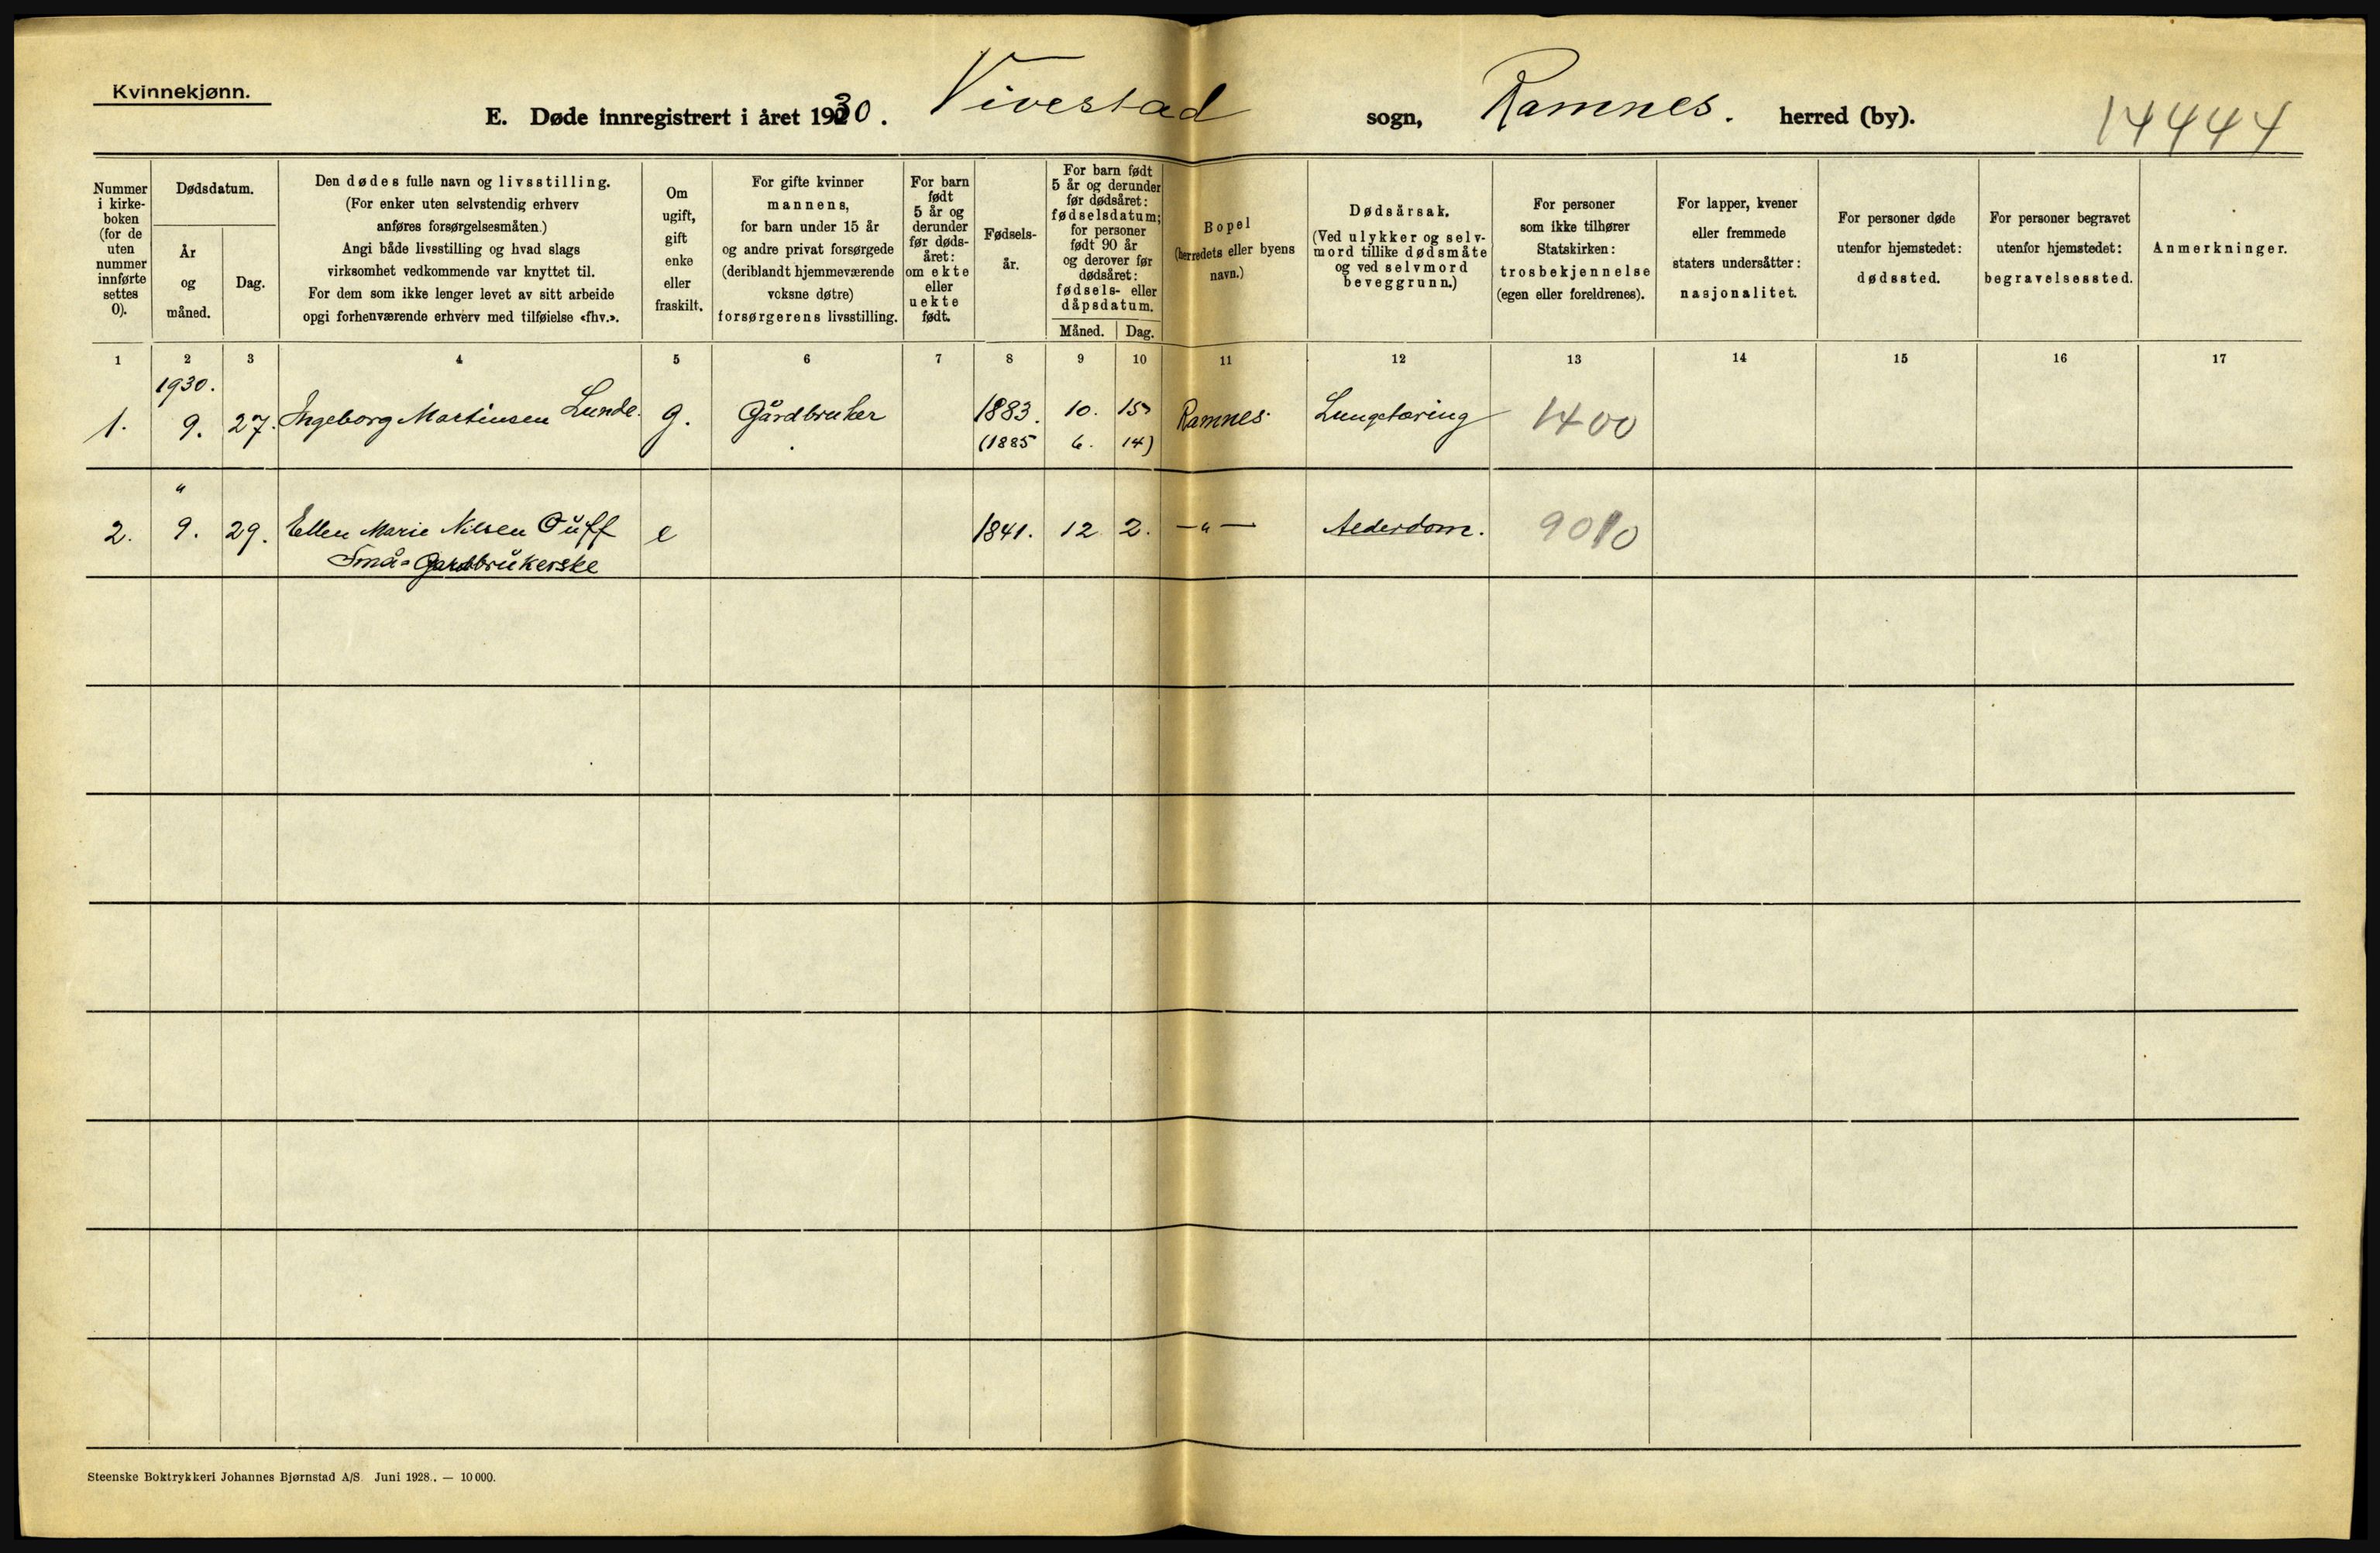 Kvinnekjønn.
E. Døde innregistrert i året 1930. Vivestad sogn, Ramnes. herred (by). 14444
Nummer i kirke- boken (for de uten nummer innførte settes 0).
Dødsdatum.
År og måned.
Dag.
Den dødes fulle navn og livsstilling.
(For enker uten selvstendig erhverv
anføres forsørgelsesmåten.)
Angi både livsstilling og hvad slags
virksomhet vedkommende var knyttet til.
For dem som ikke lenger levet av sitt arbeide
opgi forhenværende erhverv med tilføielse «fhv.».
Om
ugift,
gift
enke
eller
fraskilt.
For gifte kvinner
mannens,
for barn under 15 år
og andre privat forsørgede
(deriblandt hjemmeværende
voksne døtre)
forsørgerens livsstilling.
For barn
født
5 år og
derunder
før døds-
året:
om ekte
eller
uekte
født.
Fødsels-
år.
For barn født
5 år og derunder
før dødsåret:
fødselsdatum;
for personer
født 90 år
og derover før
dødsåret:
fødsels- eller
dåpsdatum.
Måned. Dag.
Bopel
(herredets eller byens
navn.)
Dødsårsak.
(Ved ulykker og selv-
mord tillike dødsmåte
og ved selvmord
beveggrunn.)
For personer
som ikke tilhører
Statskirken:
trosbekjennelse
(egen eller foreldrenes).
For lapper, kvener
eller fremmede
staters undersåtter:
nasjonalitet.
For personer døde
utenfor hjemstedet:
dødssted.
For personer begravet
utenfor hjemstedet:
begravelsessted.
Anmerkninger.
1 2 3 4 5 6 7 8 9 10 11 12 13 14 15 16 17
1930.
1. 9. 27. Ingeborg Martinsen Lunde. g. Gårdbruker 1883. 10. 15 Ramnes Lungetæring 1400
(1885 6. 14)
"
2. 9. 29. Ellen Marie Nilsen Ŏuff e 1841. 12 2. —"— Alderdom. 9010
Små-Gardbrukerske
Steenske Boktrykkeri Johannes Bjørnstad A/S. Juni 1928. — 10 000.